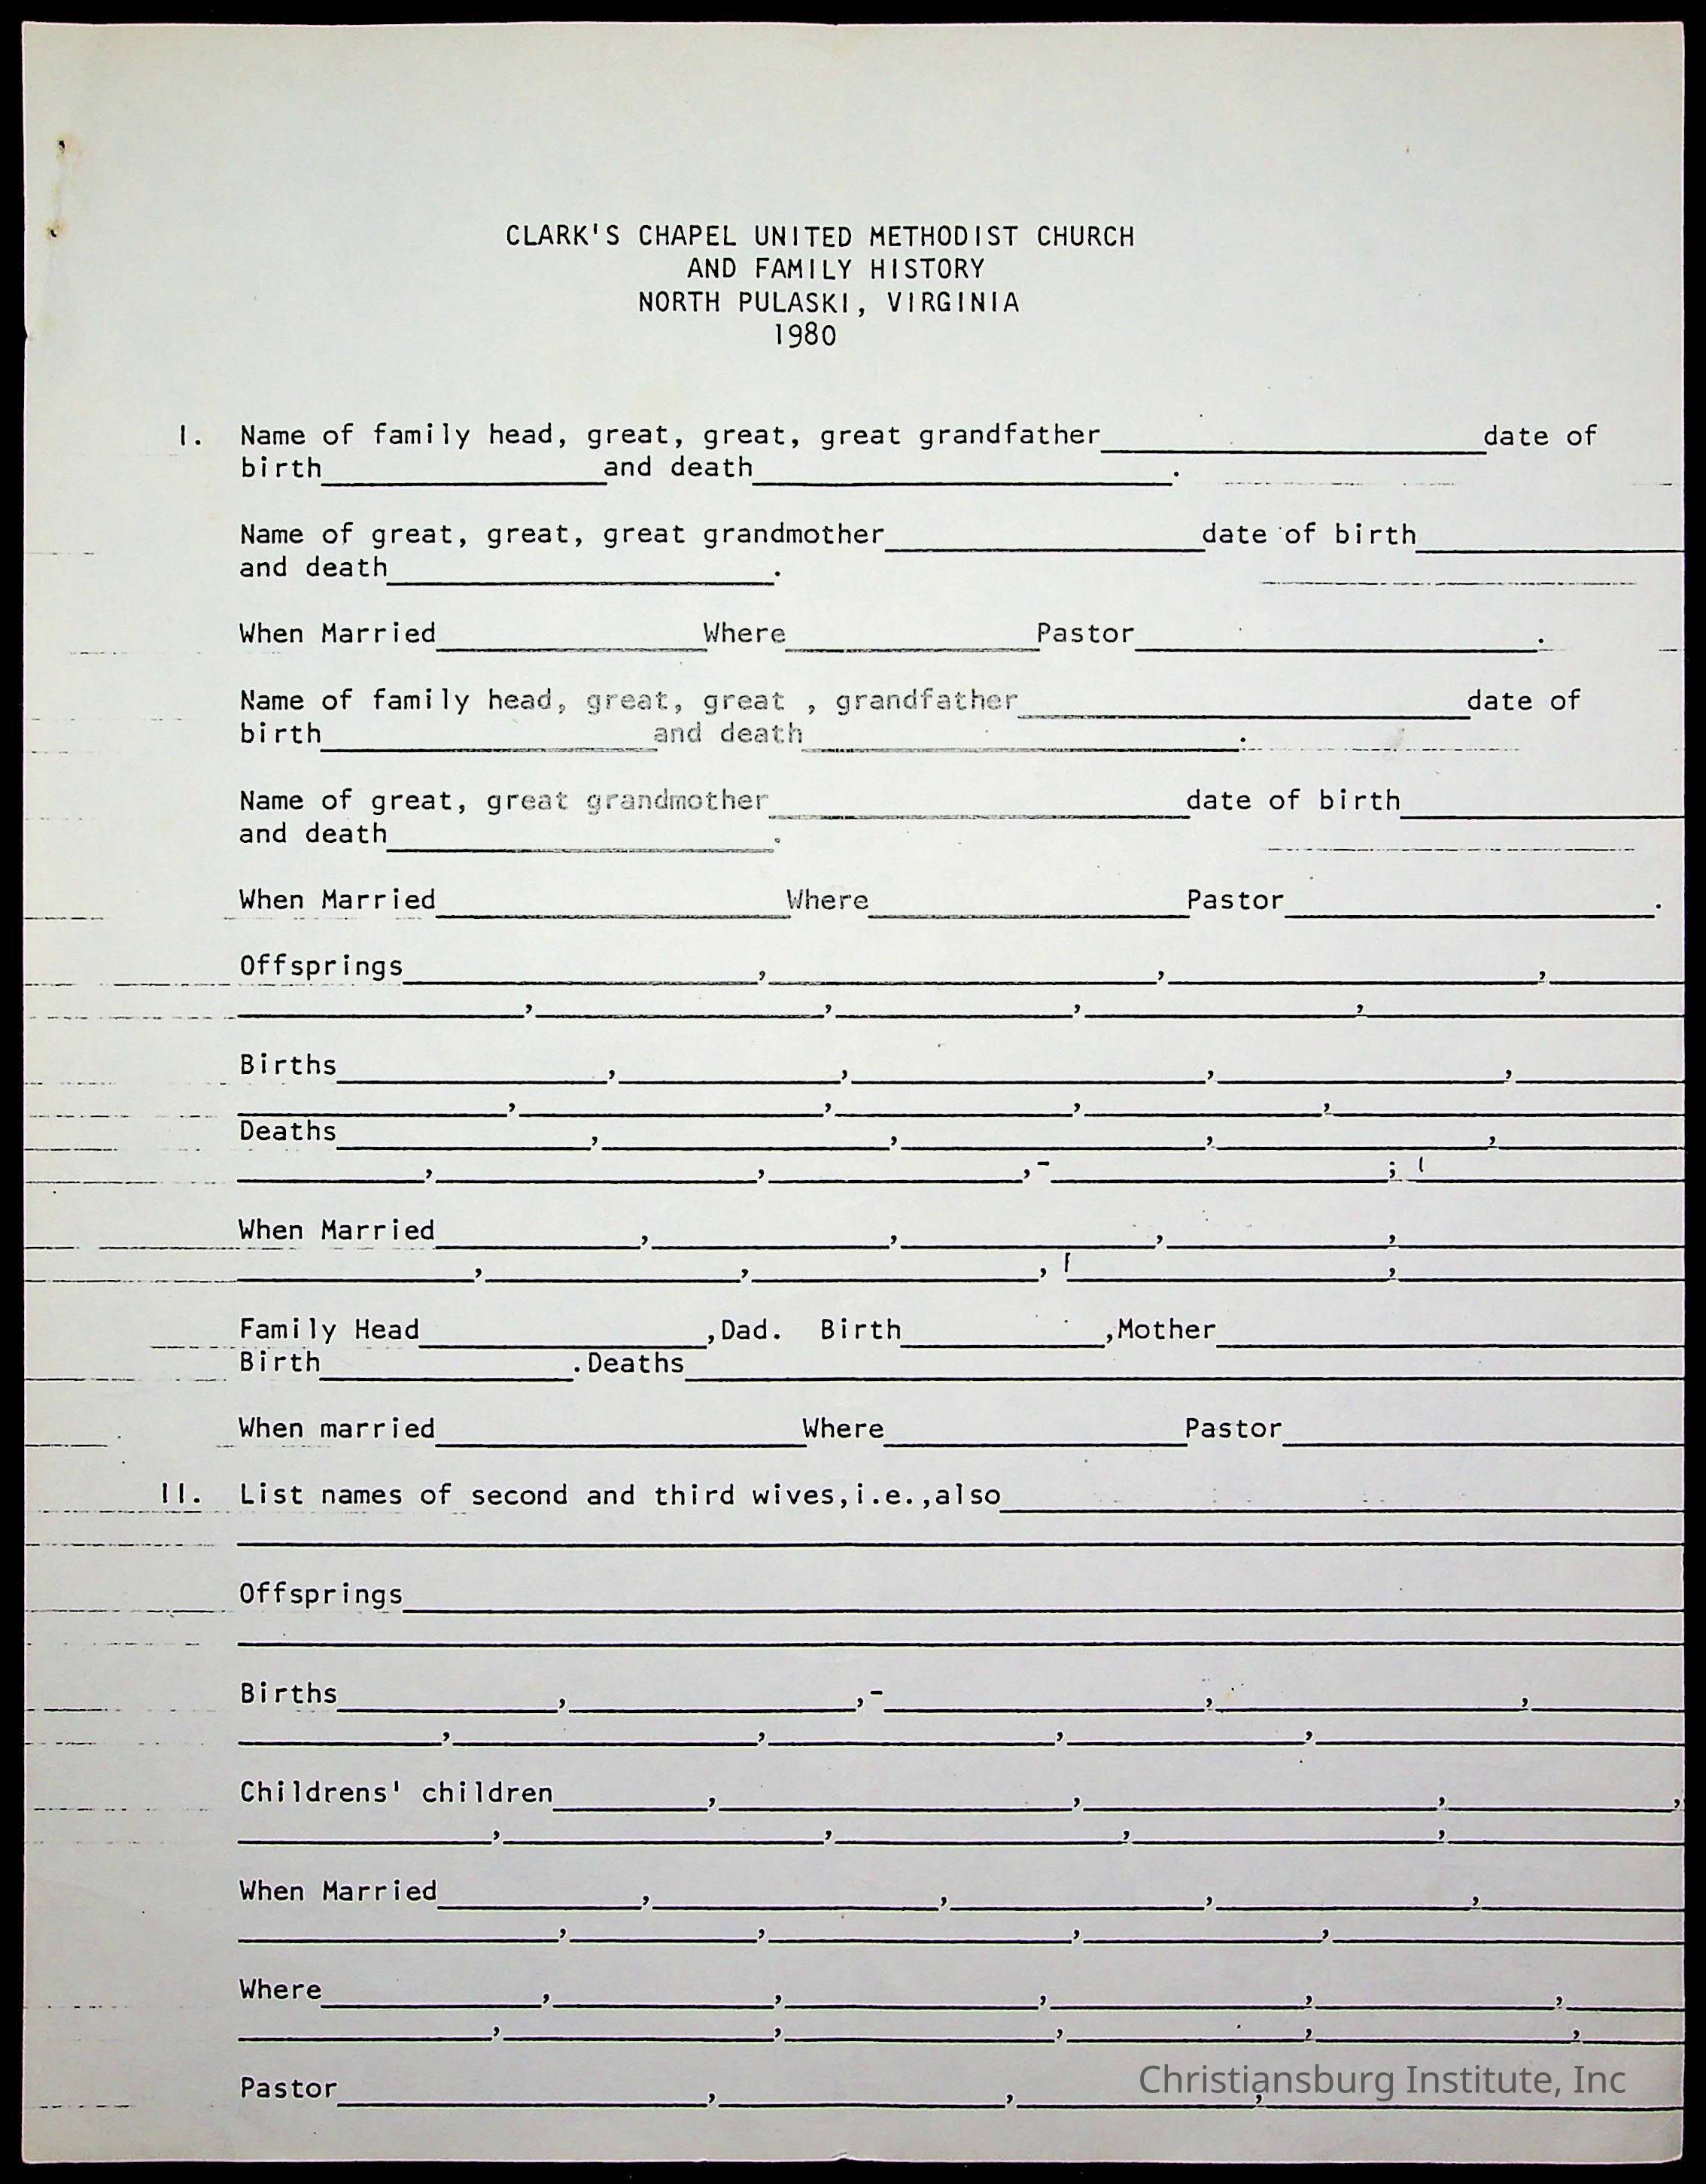 CLARK'S CHAPEL UNITED METHODIST CHURCH
AND FAMILY HISTORY
NORTH PULASKI, VIRGINIA
1980
I. Name of family head, great, great, great grandfather____________________date of
birth_______________and death______________________.
Name of great, great, great grandmother_________________date of birth______________
and death____________________.
When Married______________Where_____________Pastor_____________________.
Name of family head, great, great , grandfather_______________________date of
birth_________________and death_______________________.
Name of great, great grandmother______________________date of birth______________
and death____________________.
When Married__________________Where_________________Pastor___________________.
Offsprings__________________,__________________,__________________,_______
_______________,_______________,____________,______________,______________
Births______________,____________,__________________,______________,________
______________,________________,____________,____________,______________
Deaths_____________,_______________,________________,______________,_________
__________,________________,_____________,-_________________; (____________
When Married__________,____________,_____________,___________,______________
____________,____________,______________,_________________,______________
Family Head_______________,Dad. Birth__________,Mother_____________________
Birth_____________.Deaths__________________________________________________
When married___________________Where________________Pastor____________________
II. List names of second and third wives,i.e.,also________________________________
___________________________________________________________________________
Offsprings_________________________________________________________________
___________________________________________________________________________
Births___________,______________,-________________,_______________,________
__________,_______________,______________,____________,___________________
Childrens' children________,_________________,_________________,___________,
_____________,________________,______________,_______________,____________
When Married__________,______________,____________,____________,___________
________________,_________,_______________,____________,_________________
Where___________,___________,_____________,____________,____________,______
_____________,_____________,_____________,____________,____________,_____
Pastor__________________,______________,____________,_____________________
Christiansburg Institute, Inc